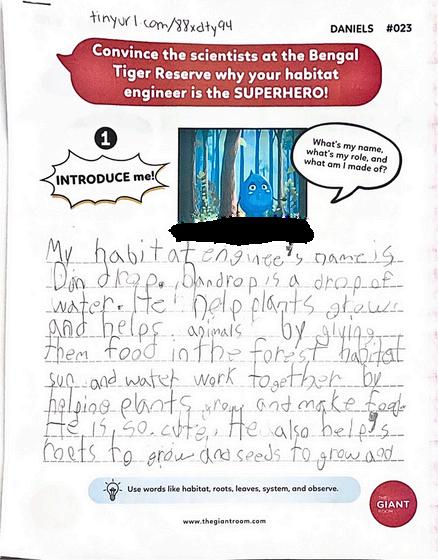 tinyurl.com/88xdty94
DANIELS #023
Convince the scientists at the Bengal
Tiger Reserve why your habitat
engineer is the SUPERHERO!
1
INTRODUCE me!
What's my name,
what's my role, and
what am I made of?
My habitat enginee's name is
Dan drop. Dandrop is a drop of
water. He help plants grow
and helps animals by giving
them food in the forest habitat
sun and water work together by
helping plants grow and make food.
He is so cute. He also helps
roots to grow and seeds to grow and
Use words like habitat, roots, leaves, system, and observe.
www.thegiantroom.com
THE
GIANT
ROOM